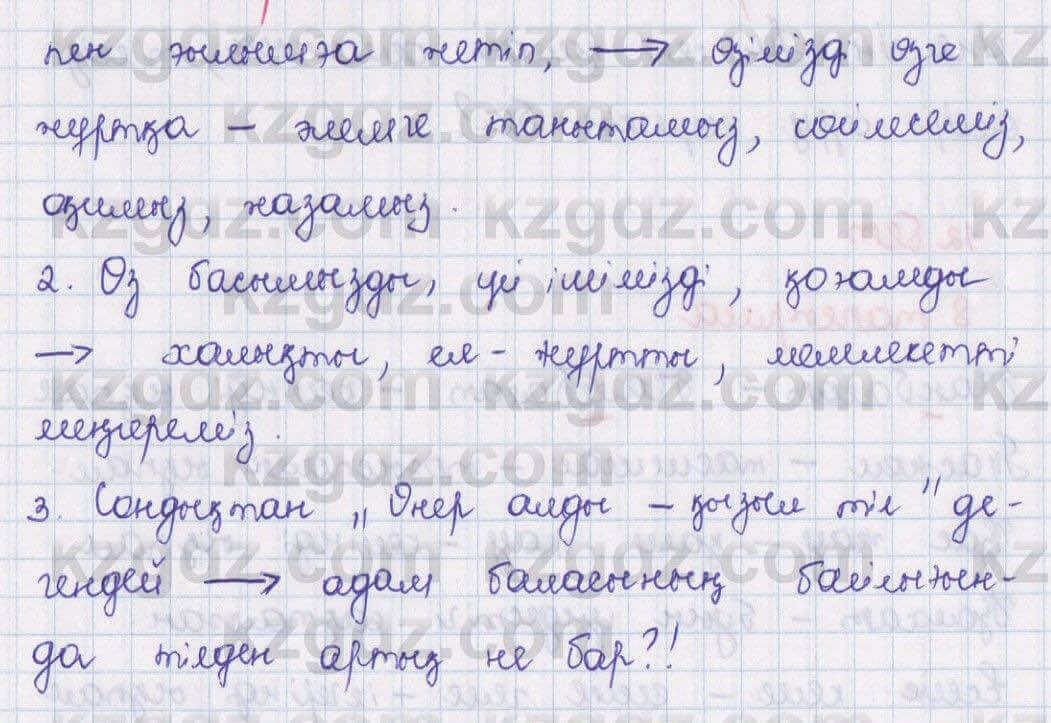 пен ғылымға жетіп, → өзімізді өзге
жұртқа – әлемге танытамыз, сөйлейміз,
оқимыз, жазамыз.
2. Өз басымызды, үй ішімізді, қоғамды
→ халықты, ел-жұртты, мемлекетті
меңгереміз.
3. Сондықтан „Өнер алды – қызыл тіл" де-
гендей → адам баласының байлығын-
да тілден артық не бар?!
kzgdz.com